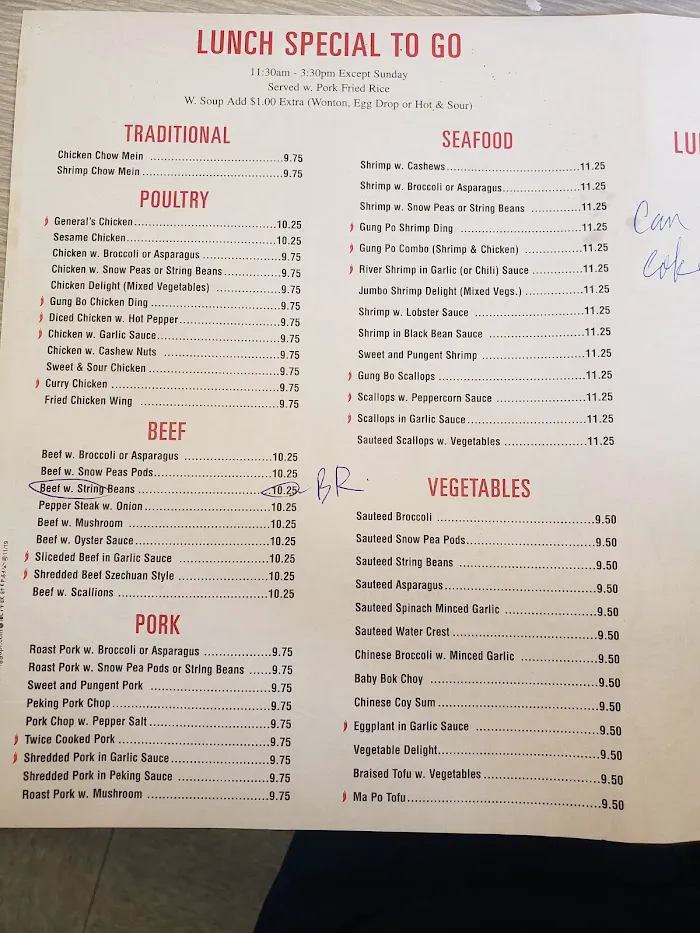 LUNCH SPECIAL TO GO
11:30am - 3:30pm Except Sunday
Served w. Pork Fried Rice
W. Soup Add $1.00 Extra (Wonton, Egg Drop or Hot & Sour)
TRADITIONAL
Chicken Chow Mein 9.75
Shrimp Chow Mein 9.75
POULTRY
General's Chicken 10.25
Sesame Chicken 10.25
Chicken w. Broccoli or Asparagus 9.75
Chicken w. Snow Peas or String Beans 9.75
Chicken Delight (Mixed Vegetables) 9.75
Gung Bo Chicken Ding 9.75
Diced Chicken w. Hot Pepper 9.75
Chicken w. Garlic Sauce 9.75
Chicken w. Cashew Nuts 9.75
Sweet & Sour Chicken 9.75
Curry Chicken 9.75
Fried Chicken Wing 9.75
BEEF
Beef w. Broccoli or Asparagus 10.25
Beef w. Snow Peas Pods 10.25
Beef w. String Beans 10.25 BR.
Pepper Steak w. Onion 10.25
Beef w. Mushroom 10.25
Beef w. Oyster Sauce 10.25
Sliceded Beef in Garlic Sauce 10.25
Shredded Beef Szechuan Style 10.25
Beef w. Scallions 10.25
PORK
Roast Pork w. Broccoli or Asparagus 9.75
Roast Pork w. Snow Pea Pods or String Beans 9.75
Sweet and Pungent Pork 9.75
Peking Pork Chop 9.75
Pork Chop w. Pepper Salt 9.75
Twice Cooked Pork 9.75
Shredded Pork in Garlic Sauce 9.75
Shredded Pork in Peking Sauce 9.75
Roast Pork w. Mushroom 9.75
SEAFOOD
Shrimp w. Cashews 11.25
Shrimp w. Broccoli or Asparagus 11.25
Shrimp w. Snow Peas or String Beans 11.25
Gung Po Shrimp Ding 11.25
Gung Po Combo (Shrimp & Chicken) 11.25
River Shrimp in Garlic (or Chili) Sauce 11.25
Jumbo Shrimp Delight (Mixed Vegs.) 11.25
Shrimp w. Lobster Sauce 11.25
Shrimp in Black Bean Sauce 11.25
Sweet and Pungent Shrimp 11.25
Gung Bo Scallops 11.25
Scallops w. Peppercorn Sauce 11.25
Scallops in Garlic Sauce 11.25
Sauteed Scallops w. Vegetables 11.25
VEGETABLES
Sauteed Broccoli 9.50
Sauteed Snow Pea Pods 9.50
Sauteed String Beans 9.50
Sauteed Asparagus 9.50
Sauteed Spinach Minced Garlic 9.50
Sauteed Water Crest 9.50
Chinese Broccoli w. Minced Garlic 9.50
Baby Bok Choy 9.50
Chinese Coy Sum 9.50
Eggplant in Garlic Sauce 9.50
Vegetable Delight 9.50
Braised Tofu w. Vegetables 9.50
Ma Po Tofu 9.50
LU
Can
Coke